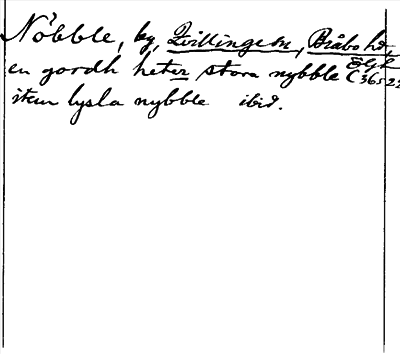 Nöbble, by, Kvillinge sn, Bråbo hd,
Ögl.
en gordh heter stora nybble C 36522
item lysla nybble ibid.